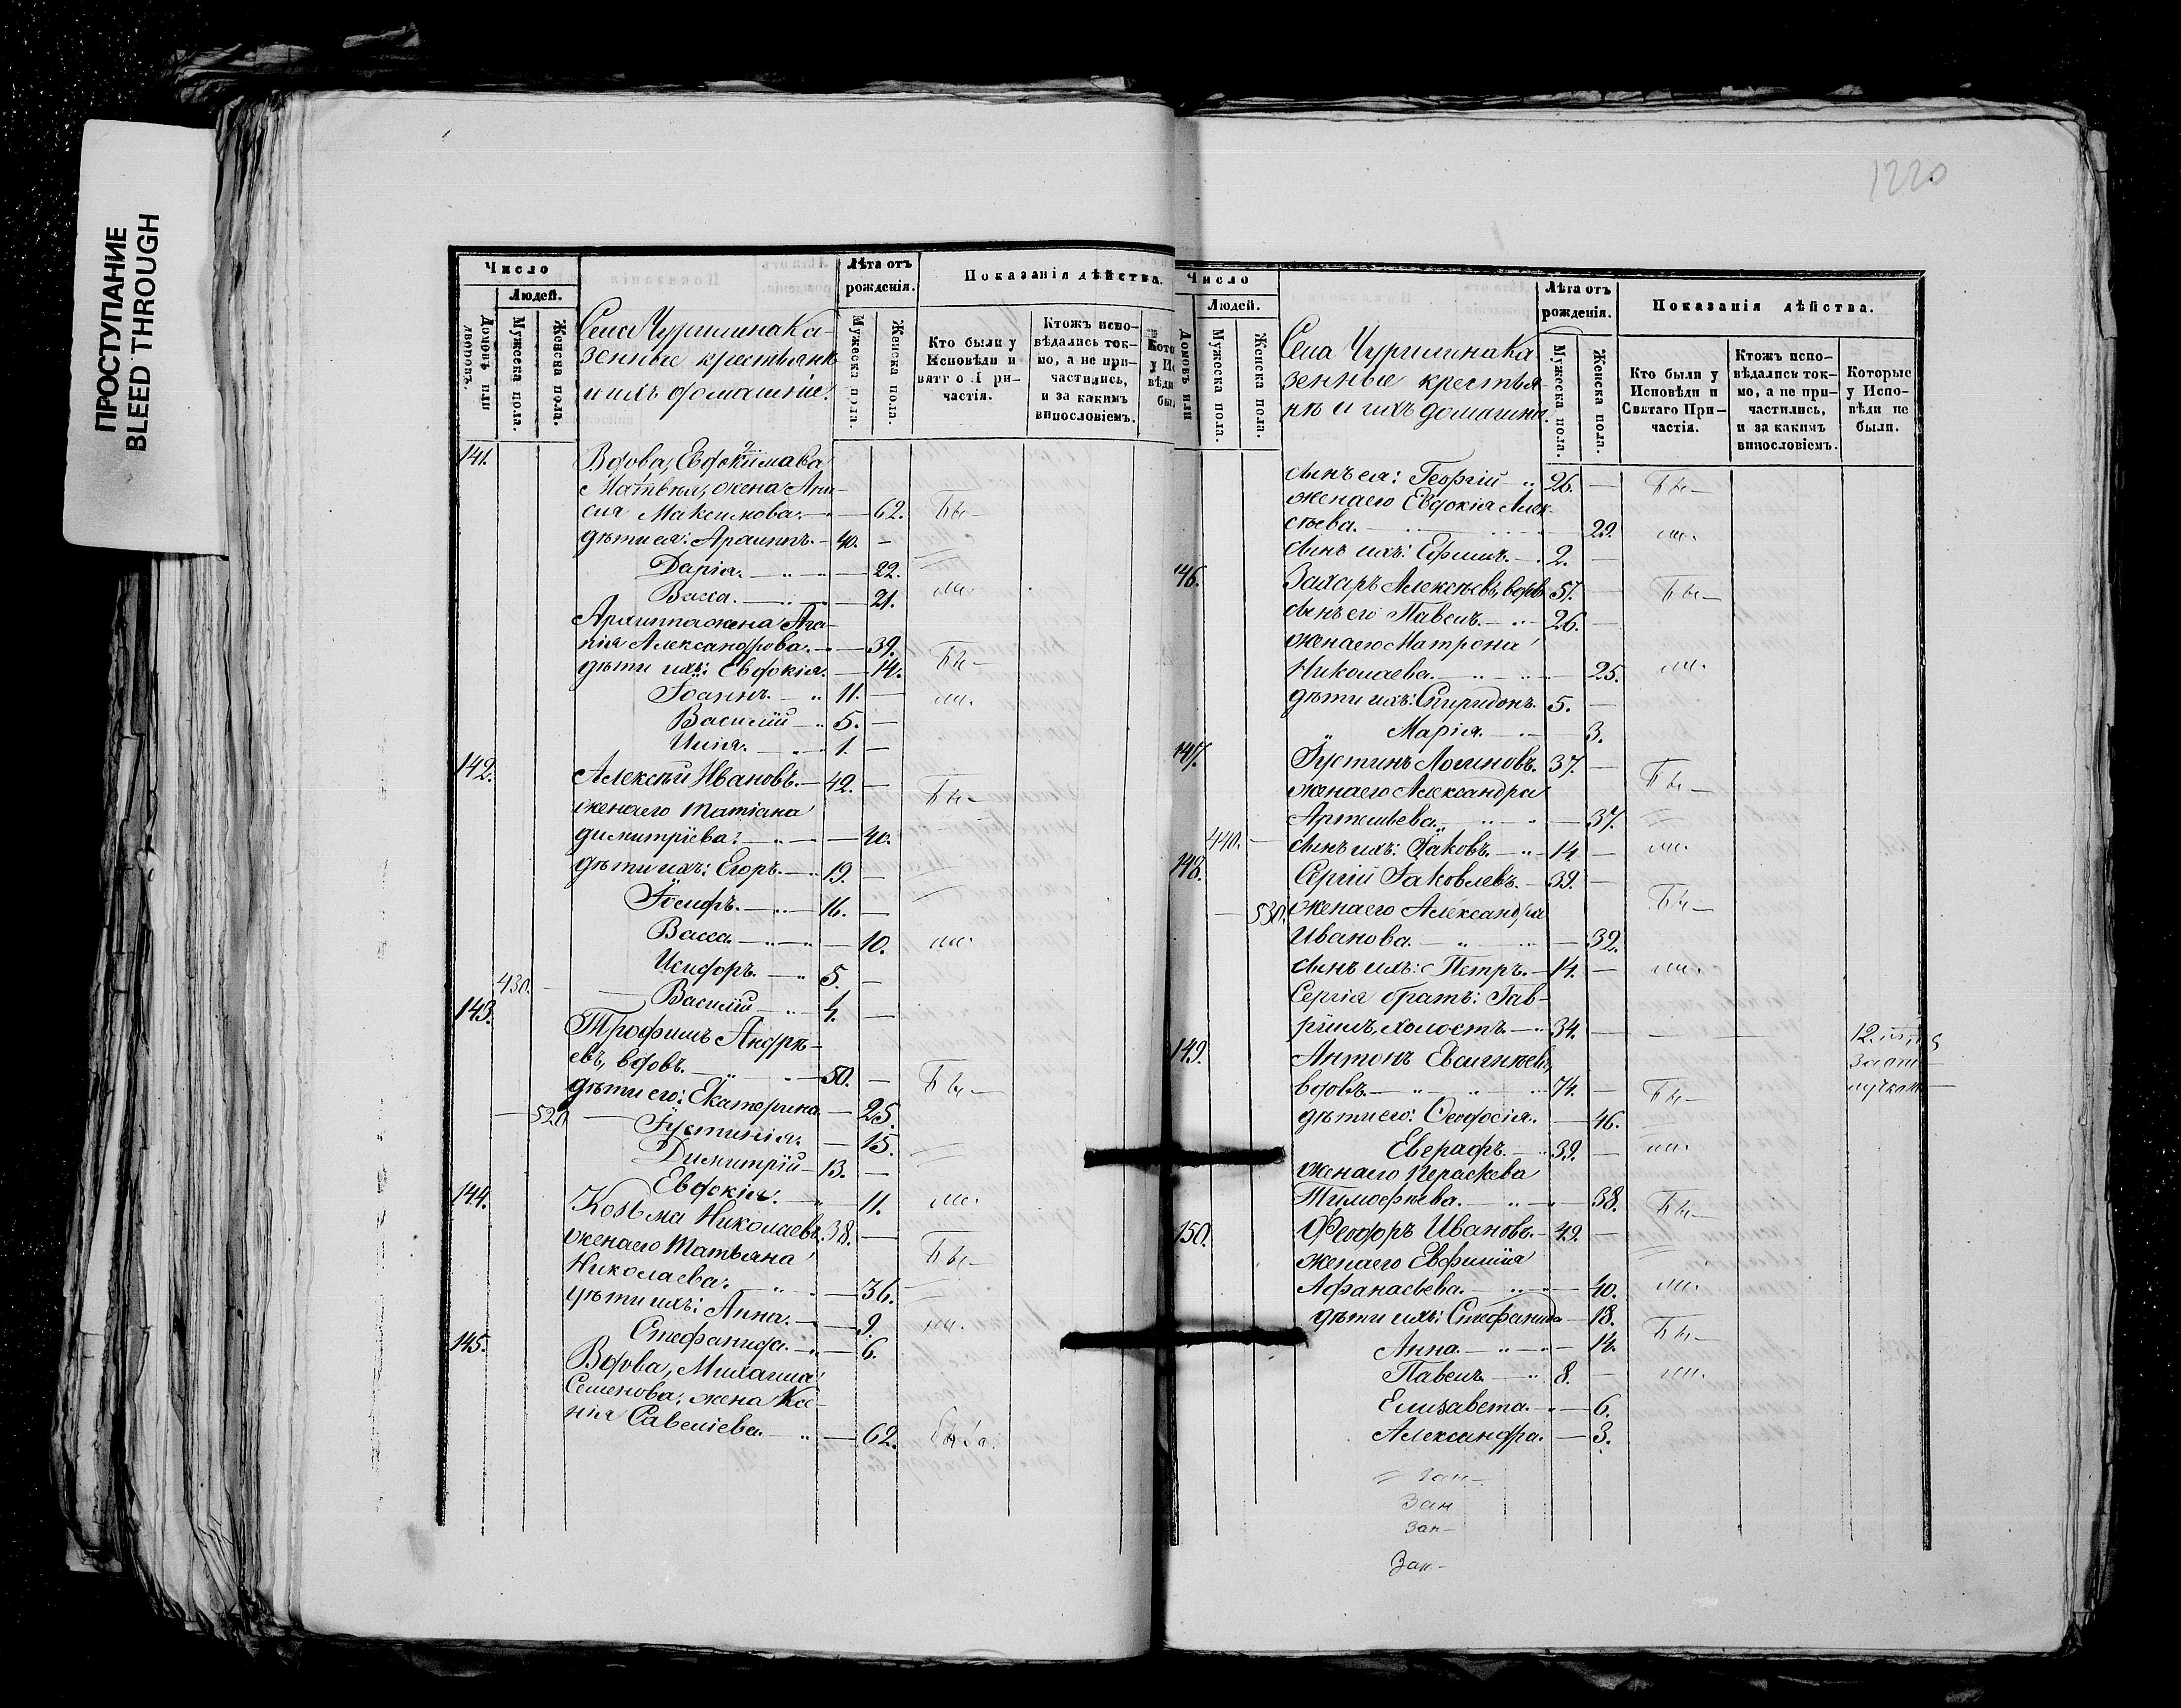 ПРОСТУПАНИЕ
BLEED THROUGH
Число
Людей.
Домовъ или дворовъ.
Мужеска пола.
Женска пола.
Села Чурилина Ка-
зенные крестьянѣ
и ихъ домашніе.
Лѣта отъ
рожденія.
Мужеска пола.
Женска пола.
Показанія дѣйства.
Кто были у
Исповѣди и
вятго При-
частія.
Ктожъ испо-
вѣдались ток-
мо, а не при-
частились,
и за какимъ
винословіемъ.
141. Вдова, Евдокимава
Матвѣя, жена Ани-
сия Максимова. — 62. Бы—
дѣти ея: Архиппъ. — 40. —
Дарія. — 22.
Васса. — 21. ли.
Архиппа жена Ага-
пія Александрова. — 39.
дѣти ихъ: Евдокія. — 14. Бы—
Іоаннъ. — 11. — ли.
Василій — 5. —
Илія. — 1. —
142. Алексѣй Ивановъ. — 42. — Бы—
жена его Татіана
димитріева. — 40.
дѣти ихъ: Егоръ. — 19. —
Іосифъ. — 16. —
Васса. — 10. ли.
Исидоръ. — 5. —
430. — Василій — 4. —
143. Трофимъ Андрѣ-
евъ, вдовъ. — 50. — Бы—
дѣти его: Екатерина. — 25.
— 520 — Іустинія. — 15.
Димитрій — 13. —
Евдокія. — 11. ли.
144. Козьма Николаевъ. 38. —
жена его Татьяна Бы—
Николаева. — 36.
дѣти ихъ: Анна. — 9. ли.
Стефанида. — 6.
145. Вдова, Михаила
Семенова, жена Ксе-
нія Савеліева. — 62. была.
1220
Число
Людей.
Домовъ или
Мужеска пола.
Женска пола.
Села Чурилина Ка
зенные крестья-
нѣ и ихъ домашніе.
Лѣта отъ
рожденія.
Мужеска пола.
Женска пола.
Показанія дѣйства.
Кто были у
Исповѣди и
Святаго При-
частія.
Ктожъ испо-
вѣдались ток-
мо, а не при-
частились,
и за какимъ
винословіемъ.
Которые
у Испо-
вѣди не
были.
Сынъ ея: Георгій — 26. — Бы—
жена его Евдокія Алек-
сѣева. — 29. ли.
Сынъ ихъ: Ефимъ. — 2. —
146. Захаръ Алексѣевъ, вдовъ 57. — Бы—
Сынъ его Павелъ. — 26. —
жена его Матрона
Николаева. — 25. ли.
дѣти ихъ: Спиридонъ. 5. —
Марія. — 3.
147. Іустинъ Логиновъ. 37. — Бы—
жена его Александра
Артемьева. — 37.
440. — Сынъ ихъ: Іаковъ. — 14 — ли.
148. Сергій Іаковлевъ. — 39. —
— 530. жена его Александра Бы—
Иванова. — 39.
Сынъ ихъ: Петръ. — 14. — ли.
Сергія братъ: Гав-
ріилъ, холостъ — 34. — 12.
149. Антонъ Евгеніевъ, за от
вдовъ. — 74. — Бы— лучкою—
дѣти его: Ѳеодосія. — 46.
Евграфъ. — 39. — ли.
жена его Параскева
Тимофѣева. — 38. Бы—
150. Ѳеодоръ Ивановъ. — 49. —
жена его Евфимія
Афанасьева. — 40. ли.
дѣти ихъ: Стефанида — 18.
Анна. — 14. Бы—
Павелъ. — 8. — ли.
Елизавета. — 6.
Александра. — 3.
Зан
Зан—
Зан—